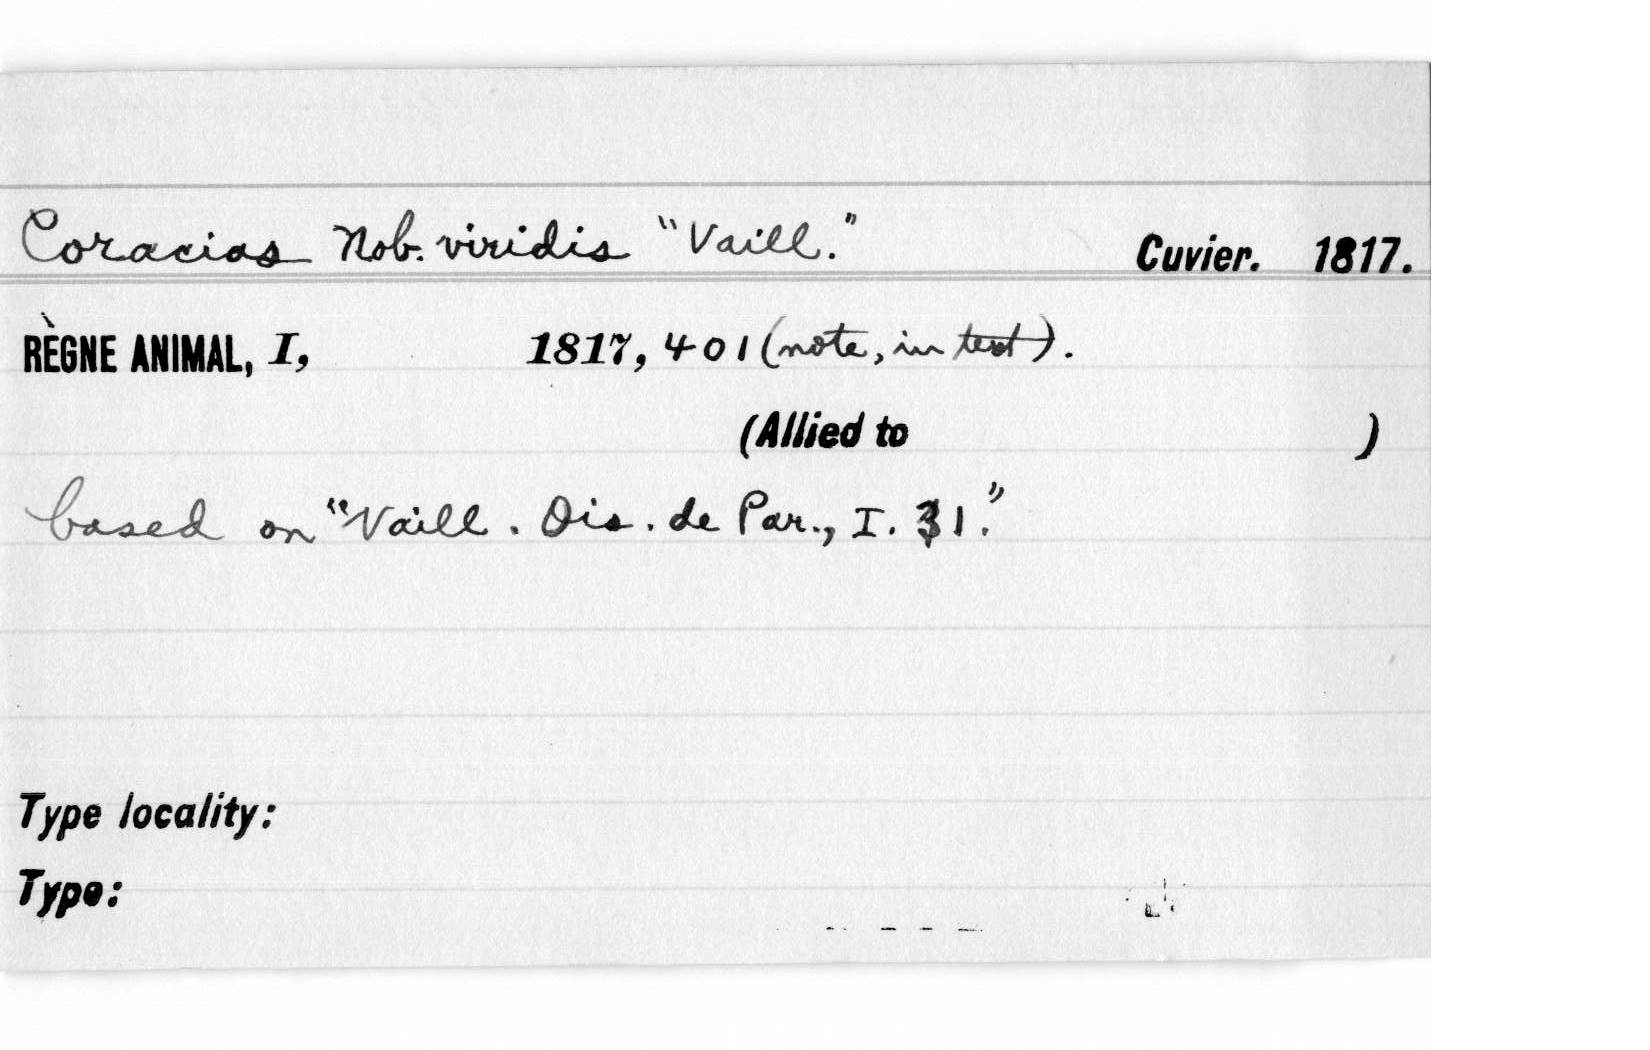 Coracias Nob. viridis "Vaill." Cuvier. 1817.
RÈGNE ANIMAL, I, 1817, 401 (note, in text).
(Allied to )
based on "Vaill. Ois. de Par., I. 31."
Type locality:
Type: